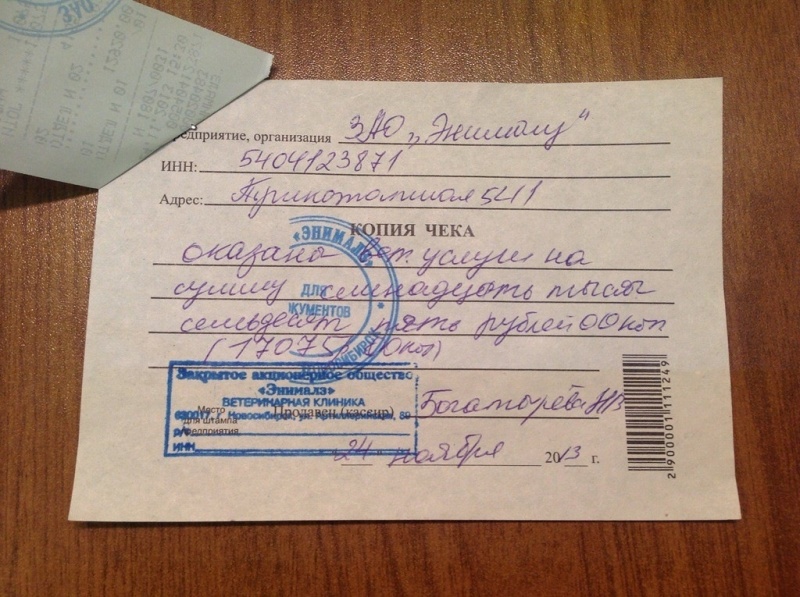 предприятие, организация ЗАО „Энималз"
ИНН: 5404123871
Адрес: 54/1
КОПИЯ ЧЕКА
оказано вет. услуги на
сумму семнадцать тысяч
семьдесят пять рублей 00 коп
(17075 00 коп)
«ЭНИМАЛЗ»
ДЛЯ
ДОКУМЕНТОВ
НОВОСИБИРСК
Закрытое акционерное общество
«Энималз»
ВЕТЕРИНАРНАЯ КЛИНИКА
630017 г. Новосибирск, ул. Артиллерийская, 89
р/с
ИНН
Место
для штампа
предприятия
Продавец (кассир) Богатырёва
"24" ноября 2013 г.
2 900001 111249